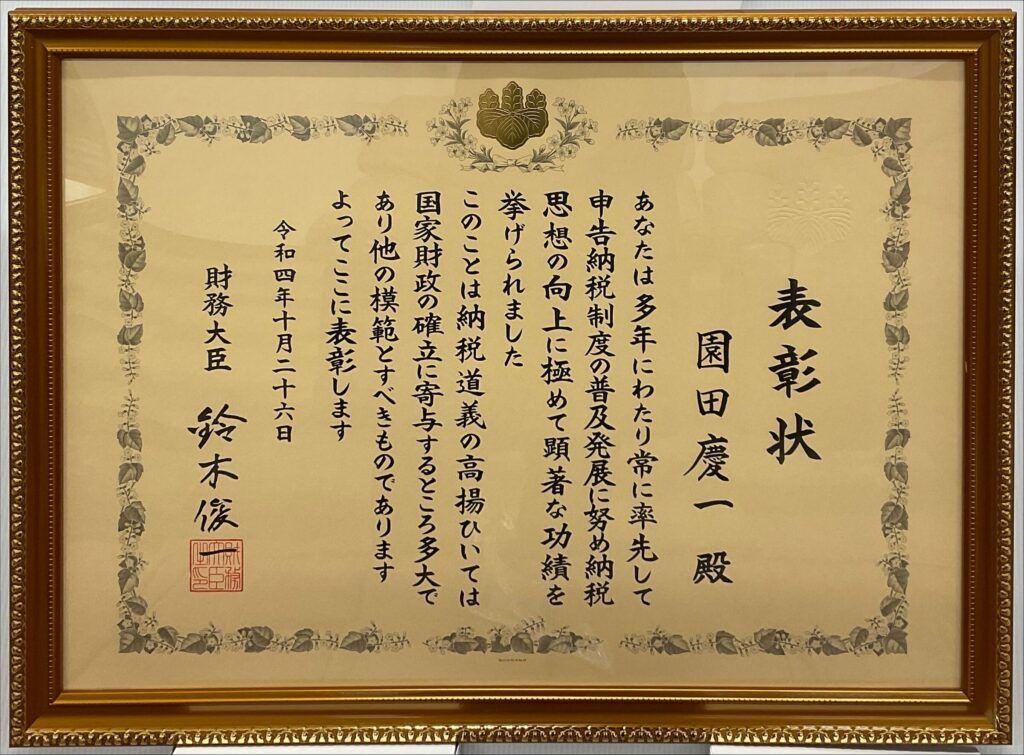 表彰状
園田慶一 殿
あなたは多年にわたり常に率先して
申告納税制度の普及発展に努め納税
思想の向上に極めて顕著な功績を
挙げられました
このことは納税道義の高揚ひいては
国家財政の確立に寄与するところ多大で
あり他の模範とすべきものであります
よってここに表彰します
令和四年十月二十六日
財務大臣 鈴木俊一